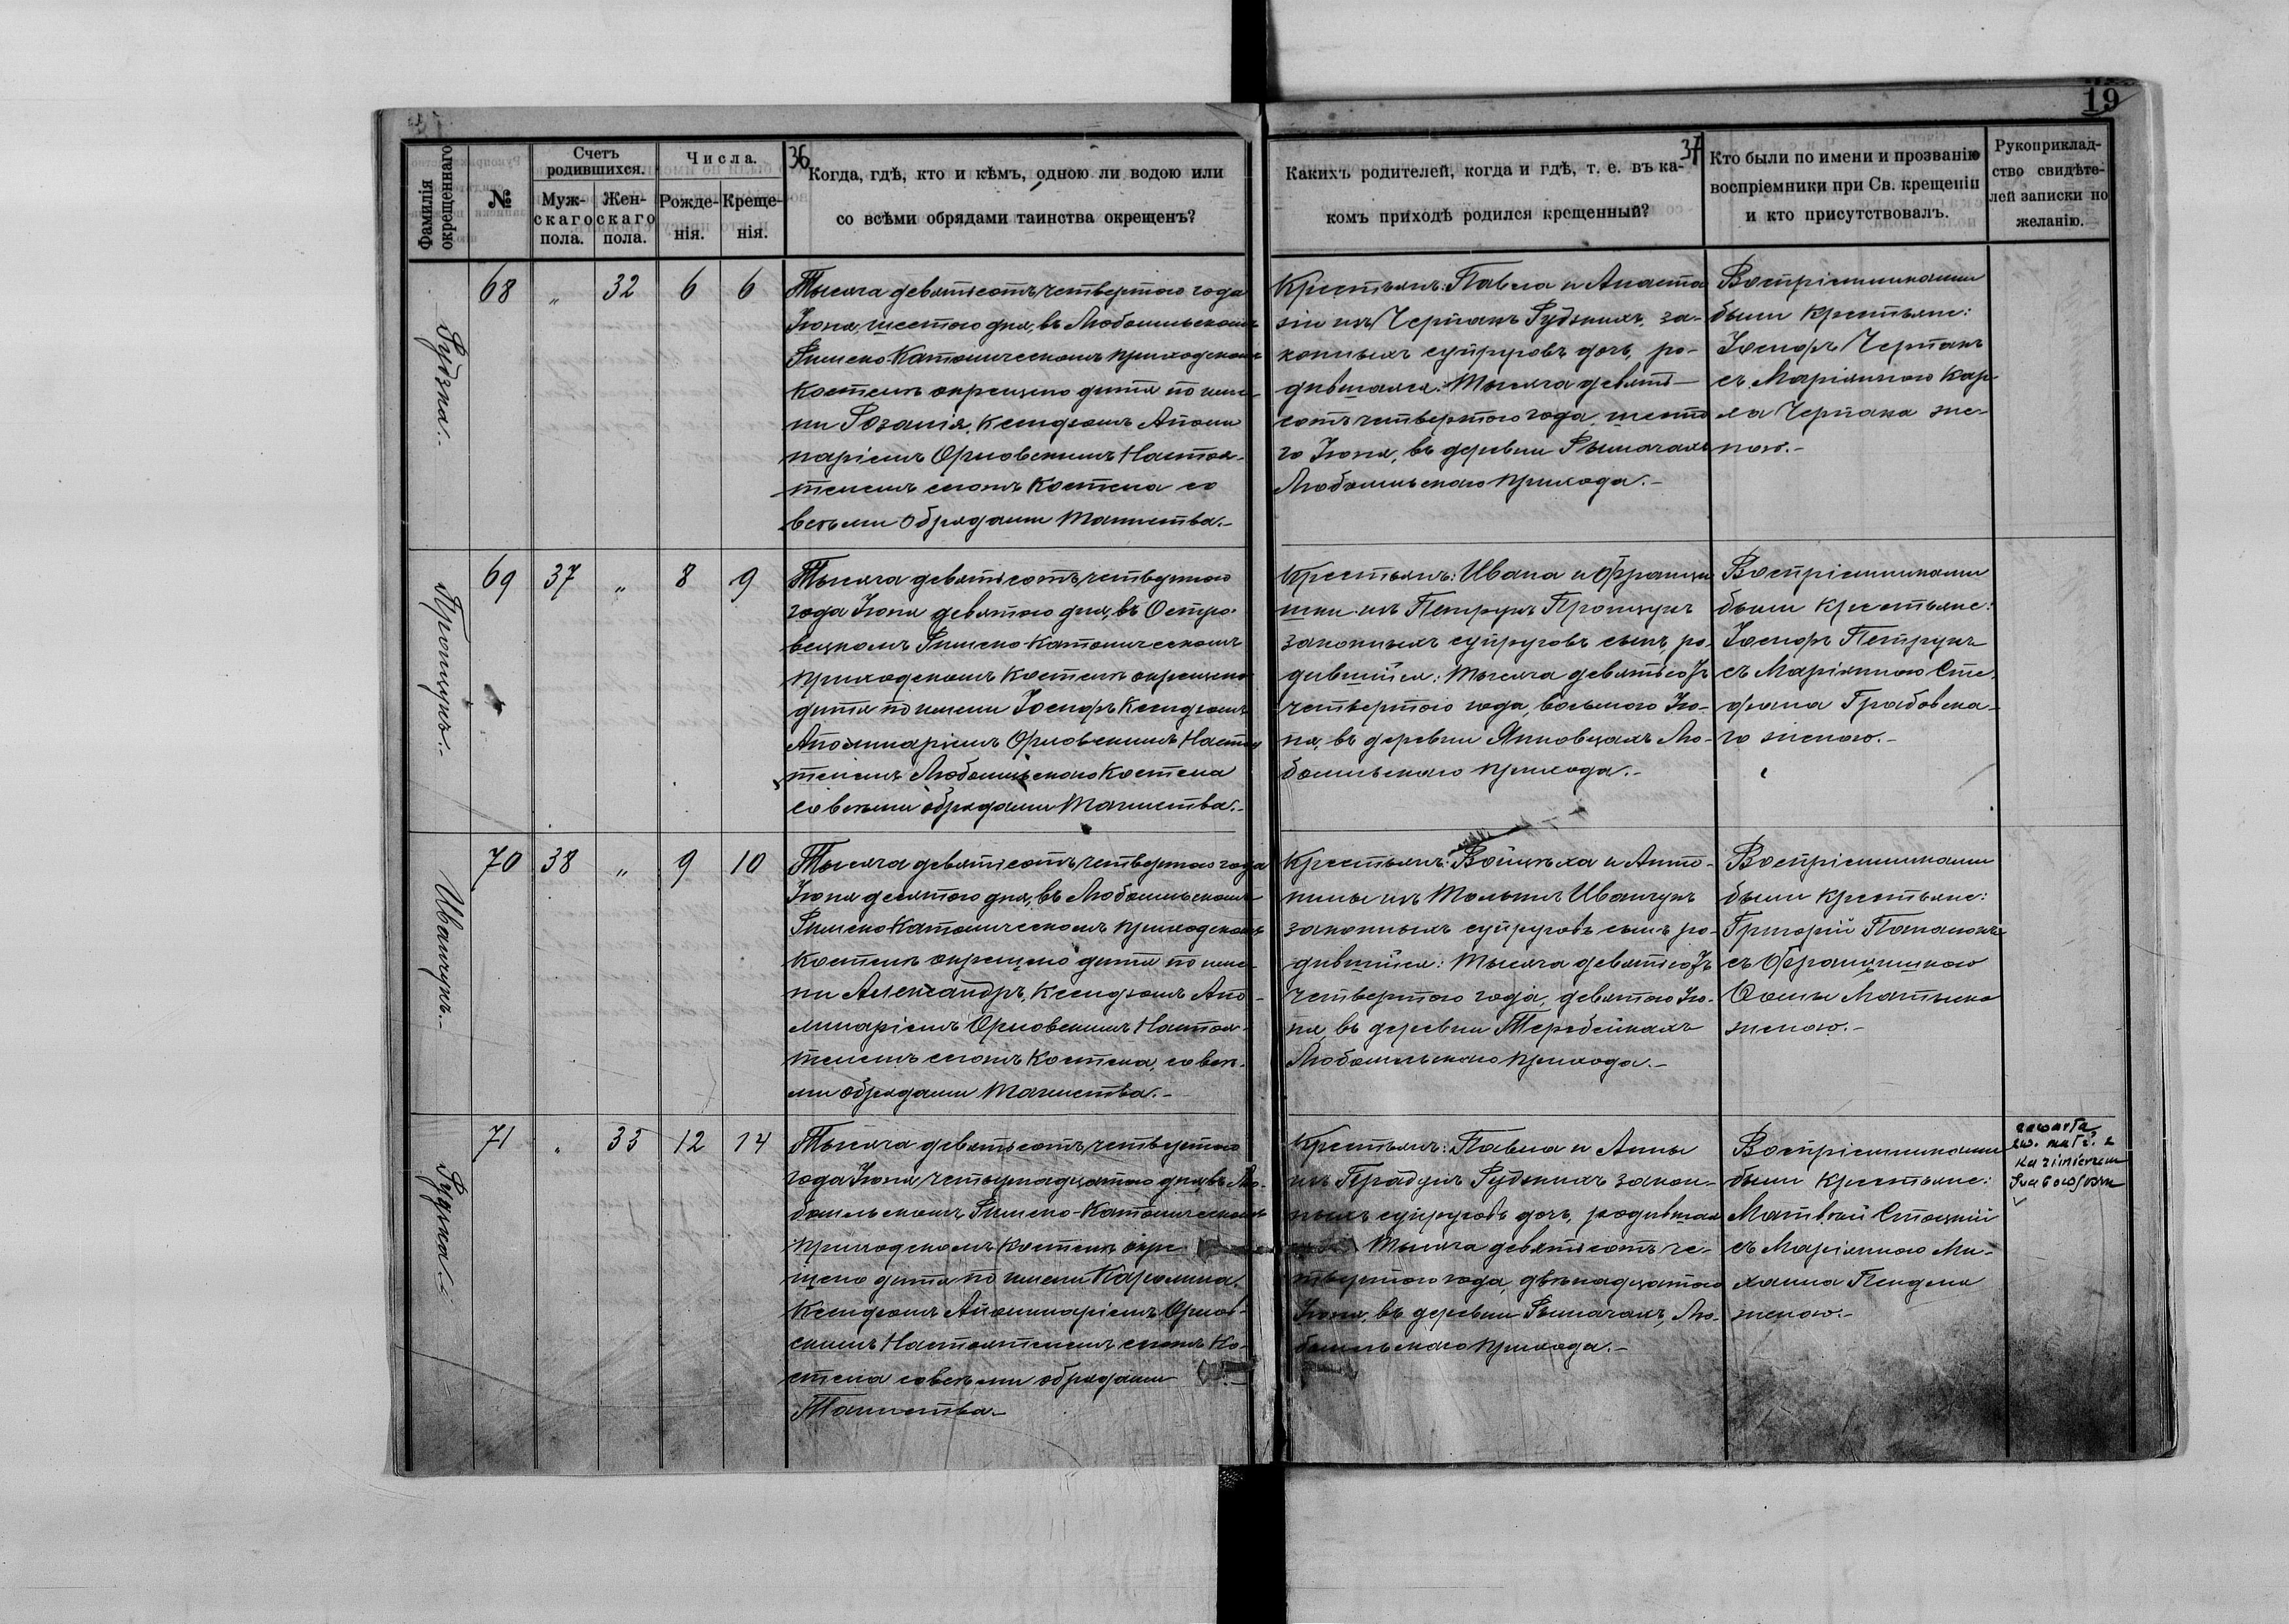 19
36
37
Фамилія окрещеннаго
№
Счетъ родившихся.
Муж-скаго пола.
Жен-скаго пола.
Числа.
Рожде-нія.
Креще-нія.
Когда, гдѣ, кто и кѣмъ, одною ли водою или
со всѣми обрядами таинства окрещенъ?
Какихъ родителей, когда и гдѣ, т. е. въ ка-
комъ приходѣ родился крещенный?
Кто были по имени и прозванію
воспріемники при Св. крещеніи
и кто присутствовалъ.
Рукоприклад-
ство свидѣте-
лей записки по
желанію.
Рудзка.
68 " 32 6 6
Тысяча девятьсотъ четвертого года
Іюня, шестого дня, въ Любомльскомъ
Римско-Католическомъ приходскомъ
костелѣ окрещено дитя по име-
ни Розалія, Ксендзомъ Аполи
наріемъ Орловскимъ Настоя-
телемъ сегожъ Костела со
всѣми обрядами Таинства.-
Крестьянъ: Павла и Анаста
зіи изъ Черпакъ Рудзкихъ, за-
конныхъ супруговъ дочь, ро-
дившаяся: Тысяча девять-
сотъ четвертого года, шесто
го Іюня, въ деревни Рымачахъ
Любомльского прихода.-
Воспріемниками
были крестьяне:
Іосифъ Черпакъ
съ Маріянною Кар-
ла Черпака же-
ною.-
Прончукъ.
69 37 " 8 9
Тысяча девятьсотъ четвертого
года Іюня девятого дня, въ Остро-
вецкомъ Римско-Католическомъ
приходскомъ костелѣ окрещено
дитя по имени Іосифъ Ксендзомъ
Аполинаріемъ Орловскимъ Настоя
телемъ Любомльского Костела
со всѣми обрядами Таинства.-
Крестьянъ: Ивана и Францы
шки изъ Петрукъ Прончукъ
законныхъ супруговъ сынъ, ро-
дившійся: Тысяча девятьсотъ
четвертого года, восьмого Ію-
ня, въ деревни Янковцахъ Лю-
бомльского прихода.-
Воспріемниками
были крестьяне:
Іосифъ Петрукъ
съ Маріянною Сте-
фана Грабовска-
го женою.-
Иванчукъ.
70 38 " 9 10
Тысяча девятьсотъ четвертого года
Іюня десятого дня, въ Любомльскомъ
Римско-Католическомъ приходскомъ
костелѣ окрещено дитя по име-
ни Александръ, Ксендзомъ Апо-
линаріемъ Орловскимъ Настоя-
телемъ сегожъ Костела, со всѣ-
ми обрядами Таинства.-
Крестьянъ: Войцѣха и Анто-
нины изъ Иванчукъ
законныхъ супруговъ сынъ ро-
дившійся: Тысяча девятьсотъ
четвертого года, девятого Ію-
ня, въ деревни Теребейкахъ
Любомльского прихода.-
Воспріемниками
были крестьяне:
Григорій
съ Францишкою
Фомы
женою.-
Рудзка.
71 " 33 12 14
Тысяча девятьсотъ четвертого
года Іюня четырнадцатого дня, въ Лю-
бомльскомъ Римско-Католическомъ
приходскомъ костелѣ окре-
щено дитя по имени Каролина.
Ксендзомъ Аполинаріемъ Орлов-
скимъ Настоятелемъ сегожъ Ко-
стела со всѣми обрядами
Таинства.-
Крестьянъ: Павла и Анны
изъ Рудзкихъ закон-
ныхъ супруговъ дочь, родившая
Тысяча девятьсотъ че-
твертого года, двѣнадцатого
Іюня, въ деревни Рымачахъ, Лю-
бомльского прихода.-
Воспріемниками
были крестьяне:
Матвѣй Стоцкій
съ Маріянною Ми-
хаила
женою.-
zawarła
zw. małż. z
Kazimierzem